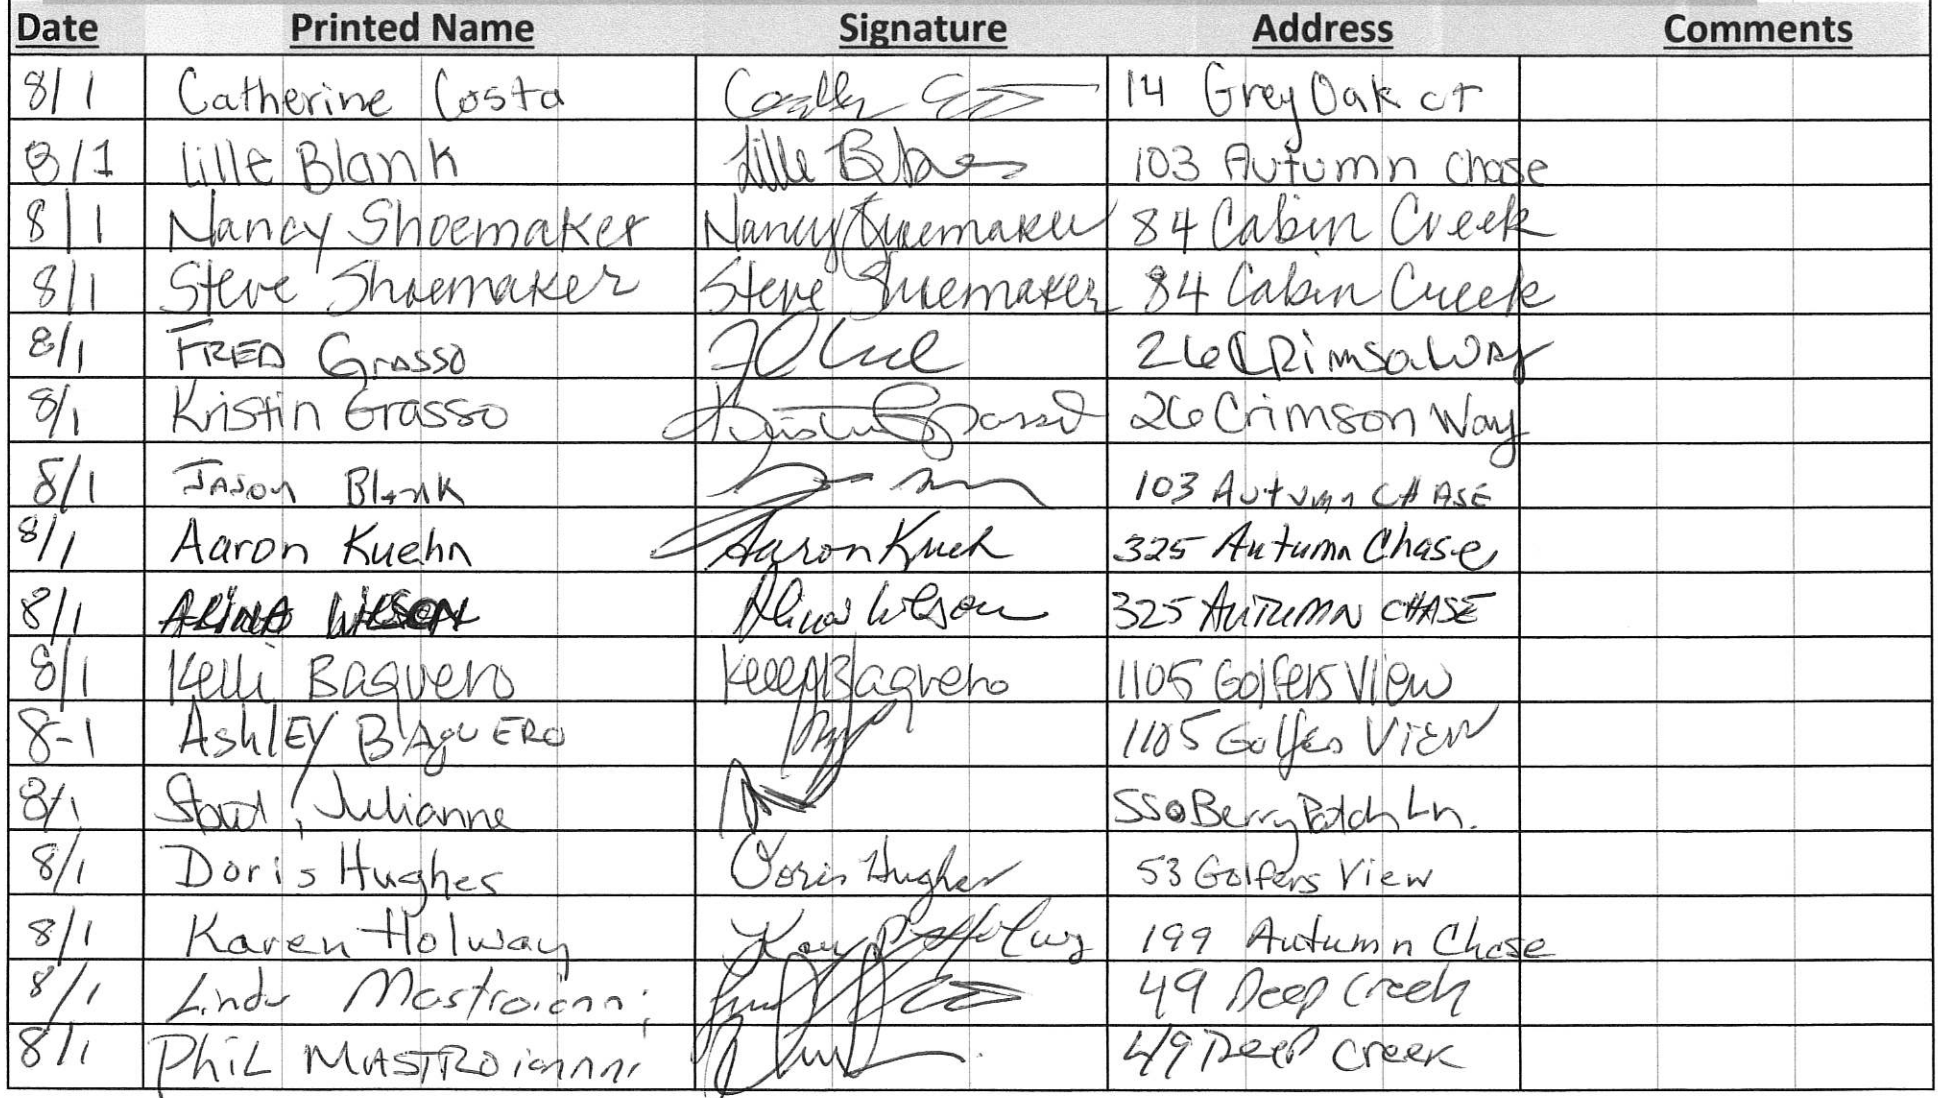 Date Printed Name Signature Address Comments
8/1 Catherine Costa 14 Grey Oak ct
8/1 Lille Blank Lille Blank 103 Autumn Chase
8/1 Nancy Shoemaker Nancy Shoemaker 84 Cabin Creek
8/1 Steve Shoemaker Steve Shoemaker 84 Cabin Creek
8/1 FRED Grasso 26 CRimson WAy
8/1 Kristin Grasso Kristin Grasso 26 Crimson Way
8/1 JASon Blank 103 Autumn CHASE
8/1 Aaron Kuehn Aaron Kueh 325 Autumn Chase
8/1 ALINA WILSON Alina Wilson 325 AUTUMN CHASE
8/1 Kelli Baquero Kelli Baquero 1105 Golfers View
8-1 AshlEY BAquERO 1105 Golfers View
8/1 Julianne Berry Patch Ln.
8/1 Doris Hughes Doris Hughes 53 Golfers View
8/1 Karen Holway 199 Autumn Chase
8/1 Linda Mastroianni 49 Deep Creek
8/1 Phil MASTROianni 49 Deep Creek